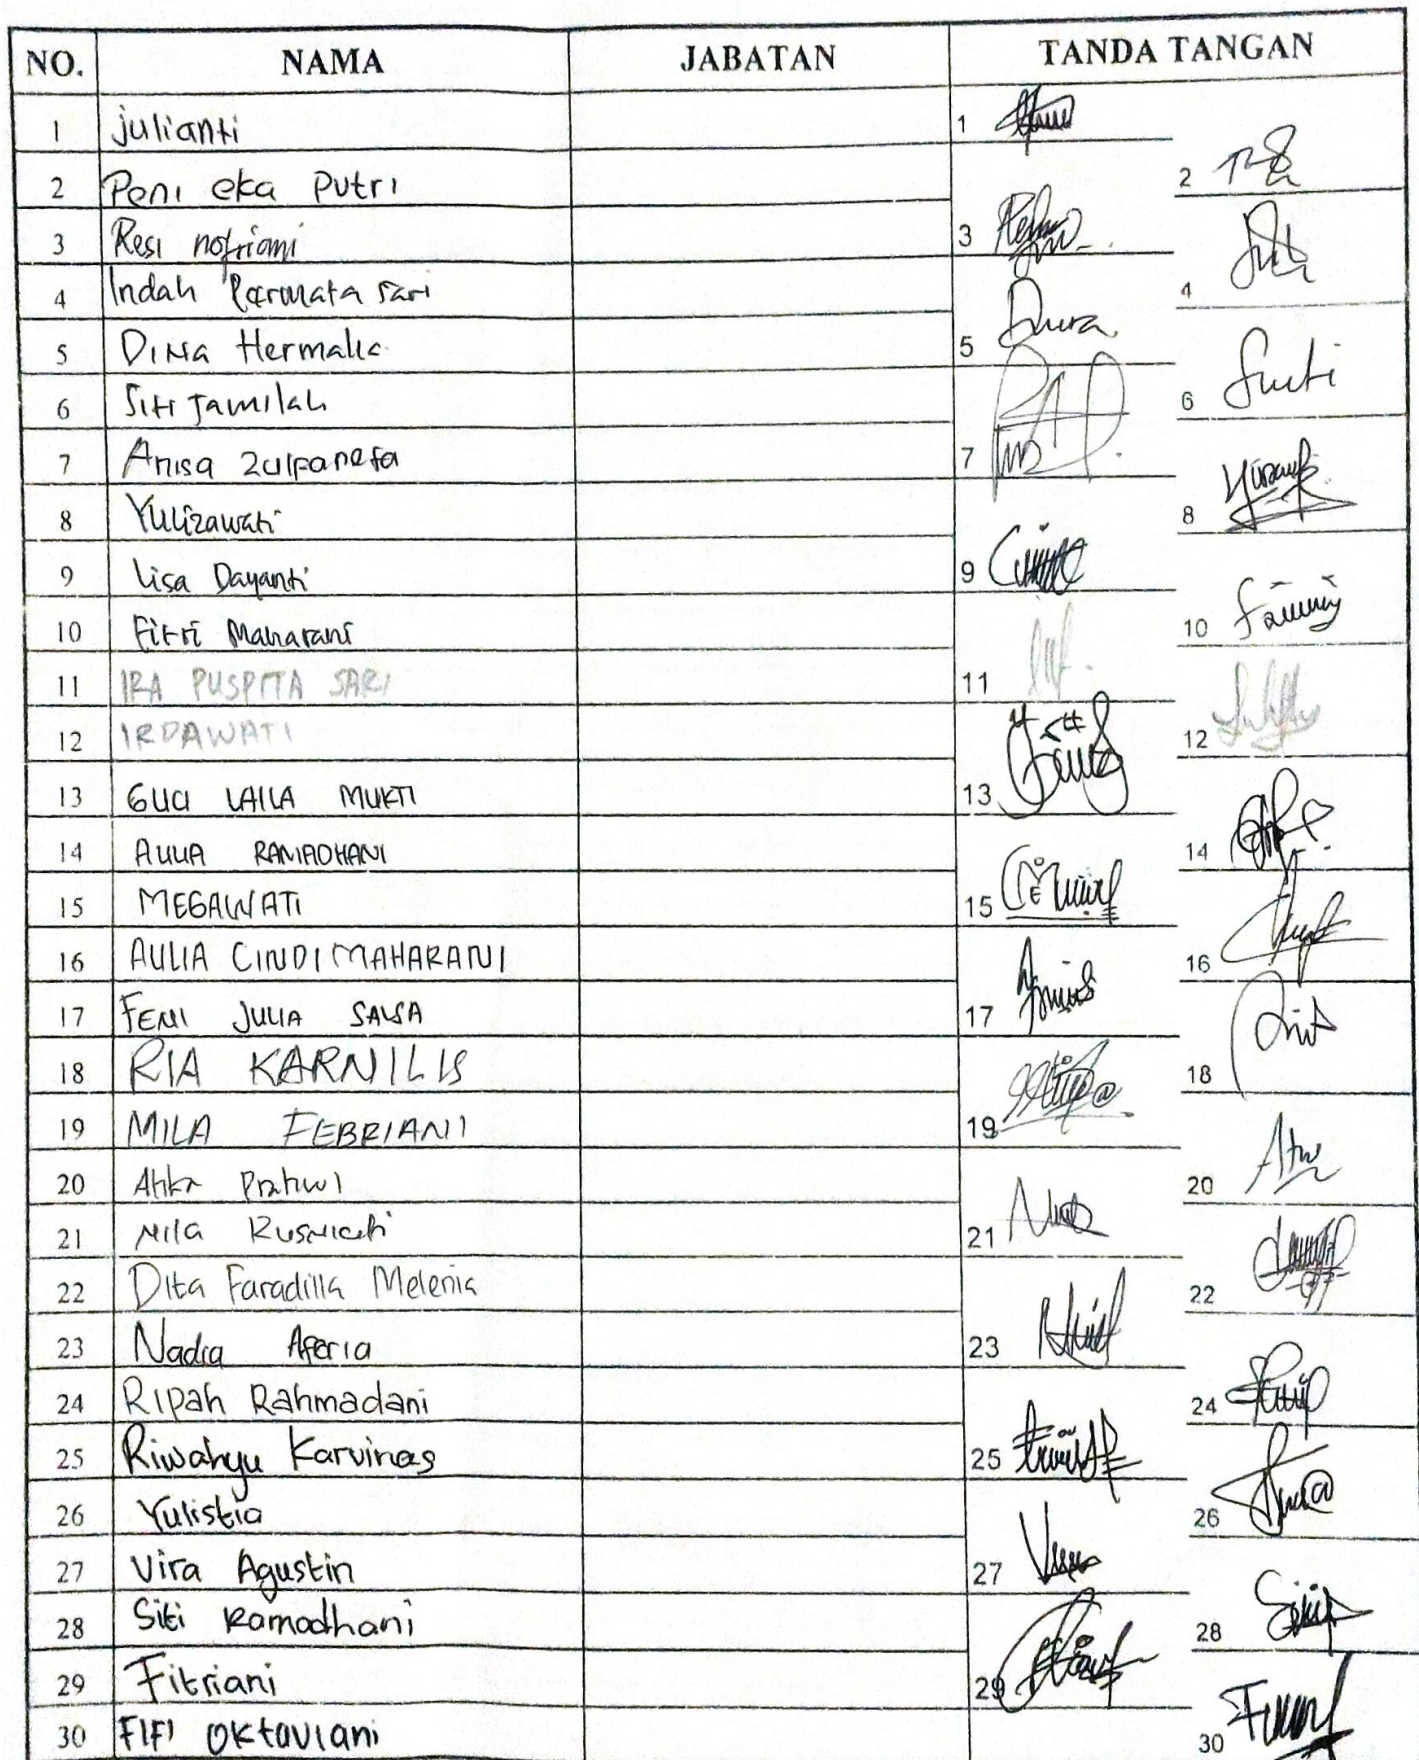 NO. NAMA JABATAN TANDA TANGAN
1 julianti 1
2 Peni eka Putri 2
3 Resi nofriani 3
4 Indah Permata sari 4
5 Dina Hermalia 5
6 Siti Jamilah 6
7 Anisa Zulpanefa 7
8 Yulizawati 8
9 Lisa Dayanti 9
10 Fitri Maharani 10
11 IRA PUSPITA SARI 11
12 IRDAWATI 12
13 GUCI LAILA MUKTI 13
14 AULIA RAMADHANI 14
15 MEGAWATI 15
16 AULIA CINDI MAHARANI 16
17 FENI JULIA SALSA 17
18 RIA KARNILIS 18
19 MILA FEBRIANI 19
20 Atika Pratiwi 20
21 Nila Kusniati 21
22 Dita Faradilla Melenia 22
23 Nadia Aferia 23
24 Ripah Rahmadani 24
25 Riwahyu Karvinas 25
26 Yulistia 26
27 Vira Agustin 27
28 Siti Ramadhani 28
29 Fitriani 29
30 FIFI OKtaviani 30